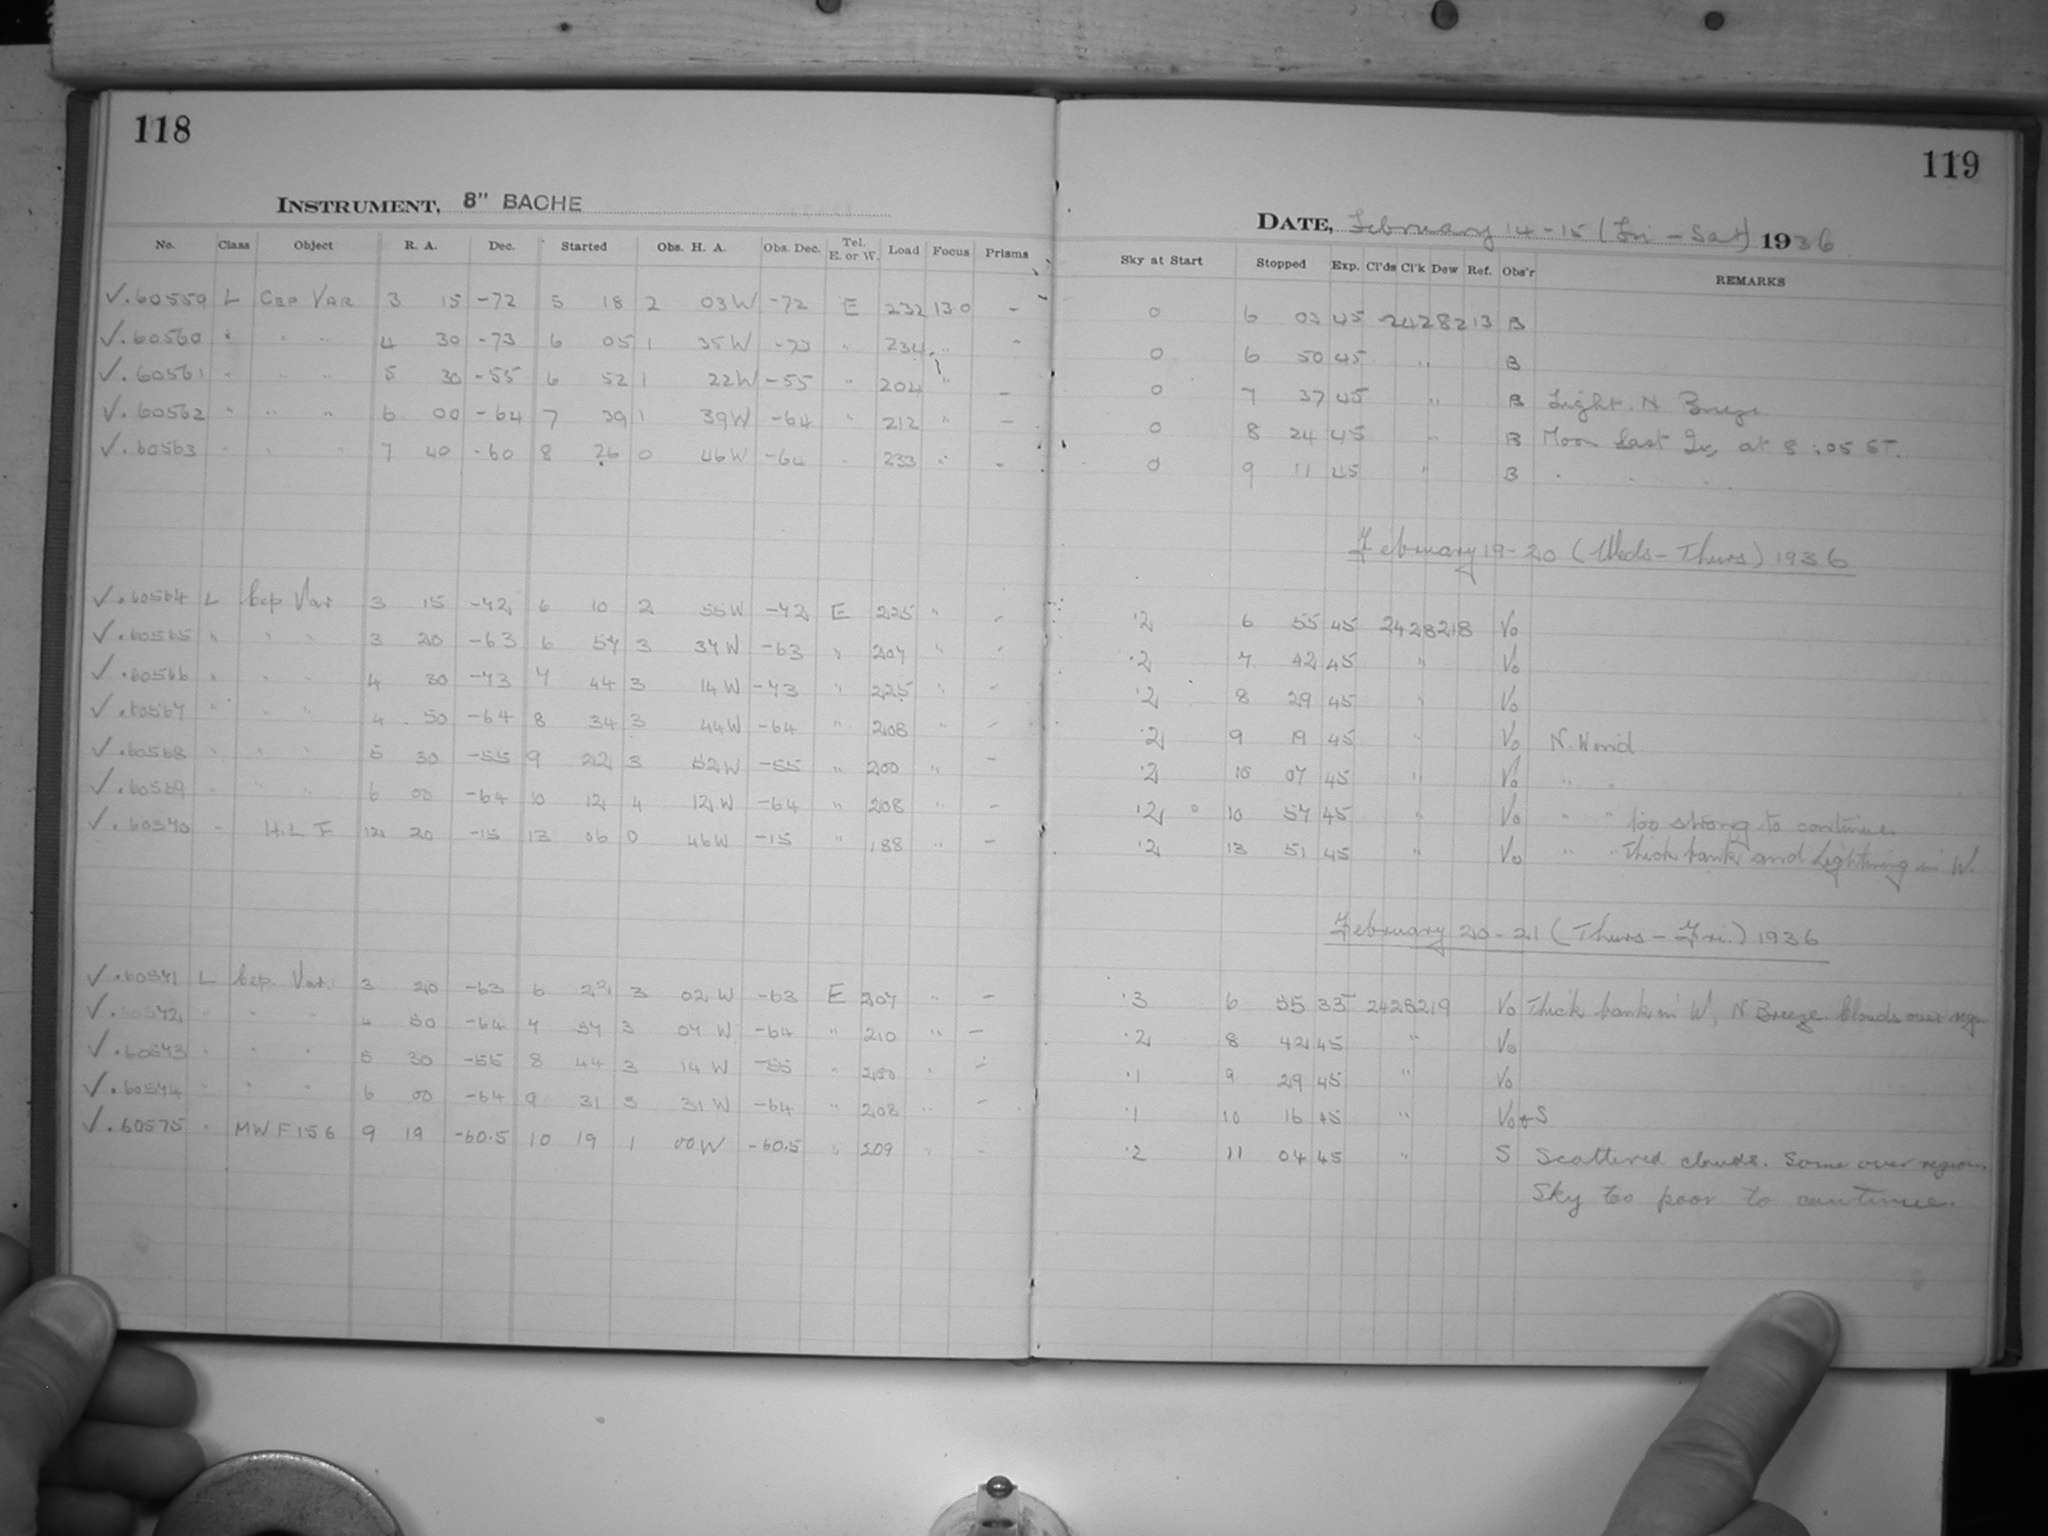 118
INSTRUMENT, 8" BACHE
No. Class Object R. A. Dec. Started Obs. H. A. Obs. Dec. Tel. E. or W. Load Focus Prisms
✓.60559 L Cep Var 3 15 -72 5 18 2 03W -72 E 232 13.0 -
✓.60560 " " " 4 30 -73 6 05 1 35W -73 " 234 " -
✓.60561 " " " 5 30 -55 6 52 1 22W -55 " 204 " -
✓.60562 " " " 6 00 -64 7 39 1 39W -64 " 212 " -
✓.60563 " " " 7 40 -60 8 26 0 46W -64 " 233 " -
✓.60564 L Cep Var 3 15 -72 6 10 2 55W -72 E 225 " -
✓.60565 " " " 3 20 -63 6 57 3 37W -63 " 207 " -
✓.60566 " " " 4 30 -73 7 44 3 14W -73 " 225 " -
✓.60567 " " " 4 50 -64 8 34 3 44W -64 " 208 " -
✓.60568 " " " 5 30 -55 9 22 3 52W -55 " 200 " -
✓.60569 " " " 6 00 -64 10 12 4 12W -64 " 208 " -
✓.60570 - H.L.F 12 20 -15 13 06 0 46W -15 " 188 " -
✓.60571 L Cep. Var. 3 20 -63 6 22 3 02W -63 E 207 " -
✓.60572 " " " 4 50 -64 7 57 3 07W -64 " 210 " -
✓.60573 " " " 5 30 -55 8 44 3 14W -55 " 200 " -
✓.60574 " " " 6 00 -64 9 31 3 31W -64 " 208 " -
✓.60575 " MWF156 9 19 -60.5 10 19 1 00W -60.5 " 209 " -
119
DATE, February 14-15 (Fri - Sat) 1936
Sky at Start Stopped Exp. Cl'ds Cl'k Dew Ref. Obs'r REMARKS
0 6 03 45 2428213 B
0 6 50 45 " B
0 7 37 45 " B Light. N Breeze
0 8 24 45 " B Moon Last Qr. at 8:05 ST.
0 9 11 45 " B " " "
February 19-20 (Weds-Thurs) 1936
.2 6 55 45 2428218 Vo
.2 7 42 45 " Vo
.2 8 29 45 " Vo
.2 9 19 45 " Vo N. Wind
.2 10 07 45 " Vo " "
.2 10 57 45 " Vo " " too strong to continue
.2 13 51 45 " Vo " " Thick bank and Lightning in W.
February 20-21 (Thurs-Fri.) 1936
.3 6 55 33 2428219 Vo Thick bank in W, N Breeze. Clouds over regn
.2 8 42 45 " Vo
.1 9 29 45 " Vo
.1 10 16 45 " Vo+S
.2 11 04 45 " S Scattered clouds. Some over region.
Sky too poor to continue.